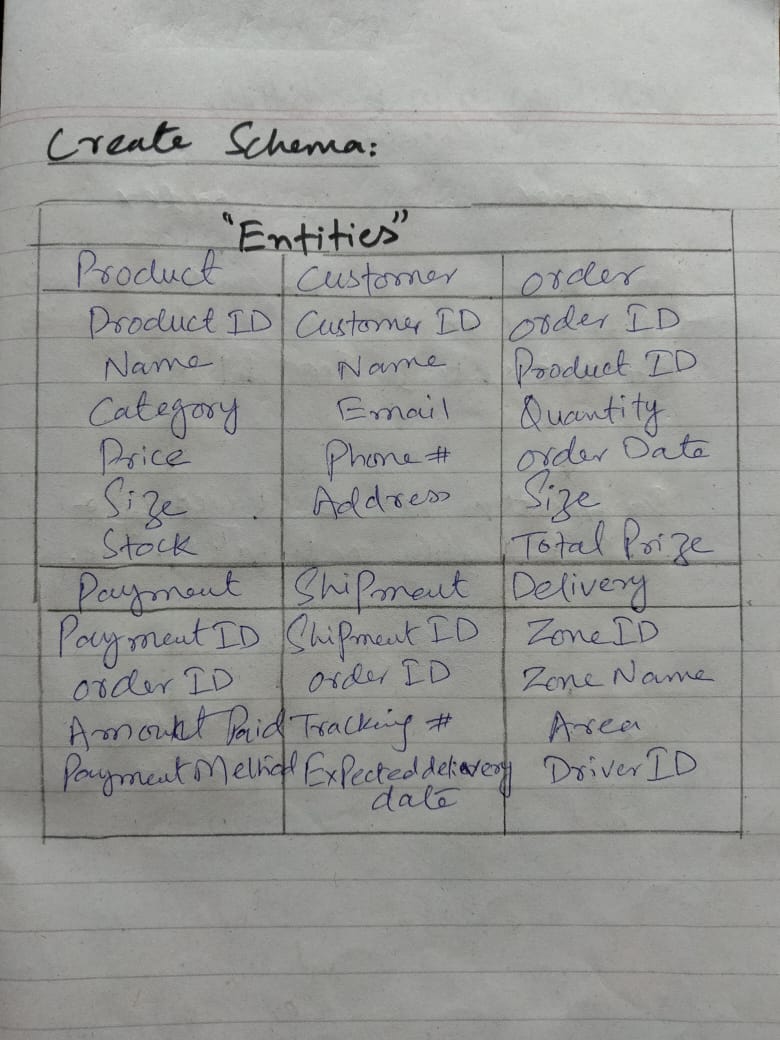 Create Schema:
"Entities"
Product Customer order
Product ID Customer ID order ID
Name Name Product ID
Category Email Quantity
Price Phone # order Date
Size Address Size
Stock Total Prize
Payment Shipment Delivery
Payment ID Shipment ID Zone ID
order ID order ID Zone Name
Amount Paid Tracking # Area
Payment Method Expected delievery Driver ID
date